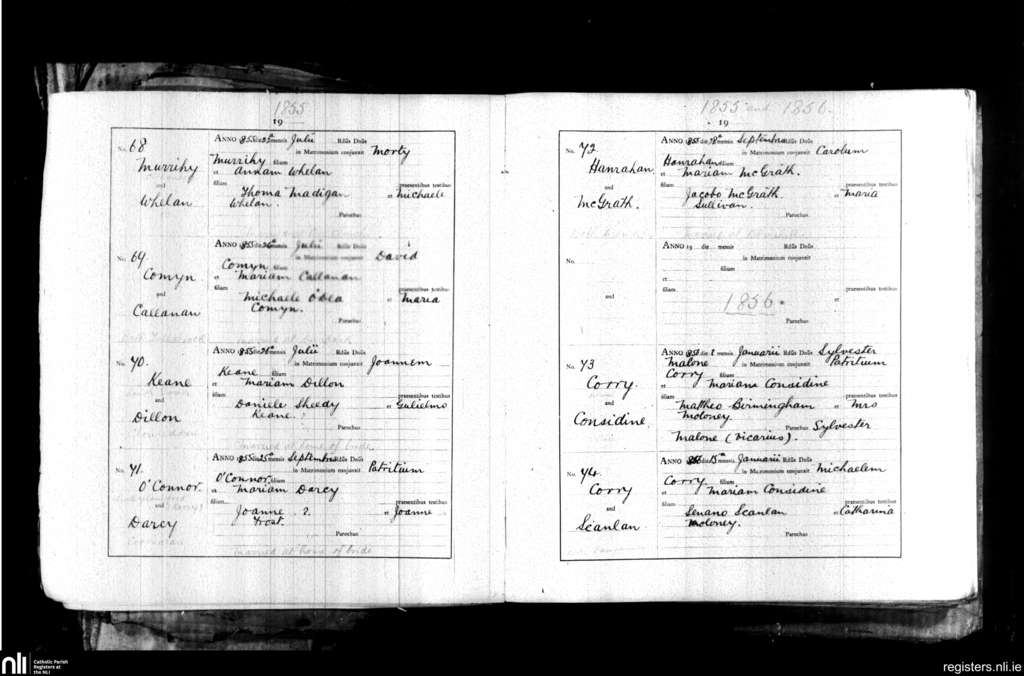 1855
19
No. 68
Murrihy
and
Whelan
ANNO 1855 die 25a mensis Julii Rdus Dnus
in Matrimonium conjunxit Morty
Murrihy filium
et Annam Whelan
filiam praesentibus testibus
Thoma Madigan et Michaele
Whelan.
Parochus
No. 69
Comyn
and
Callanan
ANNO 1855 die 26a mensis Julii Rdus Dnus
in Matrimonium conjunxit David
Comyn filium
et Mariam Callanan
filiam praesentibus testibus
Michaele O'Dea et Maria
Comyn.
Parochus
No. 70.
Keane
and
Dillon
ANNO 1855 die 26a mensis Julii Rdus Dnus
in Matrimonium conjunxit Joannem
Keane filium
et Mariam Dillon
filiam praesentibus testibus
Daniele Sheedy et Gulielmo
Keane.
Parochus
married at home of bride
No. 71.
O'Connor
and
Darcy
ANNO 1855 die 25a mensis Septembris Rdus Dnus
in Matrimonium conjunxit Patritium
O'Connor filium
et Mariam Darcy
filiam praesentibus testibus
Joanne ? et Joanne
Frost.
Parochus
married at home of bride
1855 and 1856.
19
No. 72.
Hanrahan
and
McGrath.
ANNO 1855 die 18a mensis Septembris Rdus Dnus
in Matrimonium conjunxit Carolum
Hanrahan filium
et Mariam McGrath.
filiam praesentibus testibus
Jacobo McGrath et Maria
Sullivan.
Parochus
No.
and
ANNO 19 die mensis Rdus Dnus
in Matrimonium conjunxit
filium
et
filiam praesentibus testibus
1856. et
Parochus
No. 73
Corry.
and
Considine
ANNO 1856 die 1 mensis Januarii Rdus Dnus Sylvester
Malone in Matrimonium conjunxit Patritium
Corry filium
et Mariana Considine
filiam praesentibus testibus
Mattheo Birmingham et Mrs
Moloney. Parochus Sylvester
Malone (vicarius).
No. 74
Corry
and
Scanlan
ANNO 1856 die 15a mensis Januarii Rdus Dnus
in Matrimonium conjunxit Michaelem
Corry filium
et Mariam Considine
filiam praesentibus testibus
Senano Scanlan et Catharina
Moloney.
Parochus
nli Catholic Parish
Registers at
the NLI
registers.nli.ie